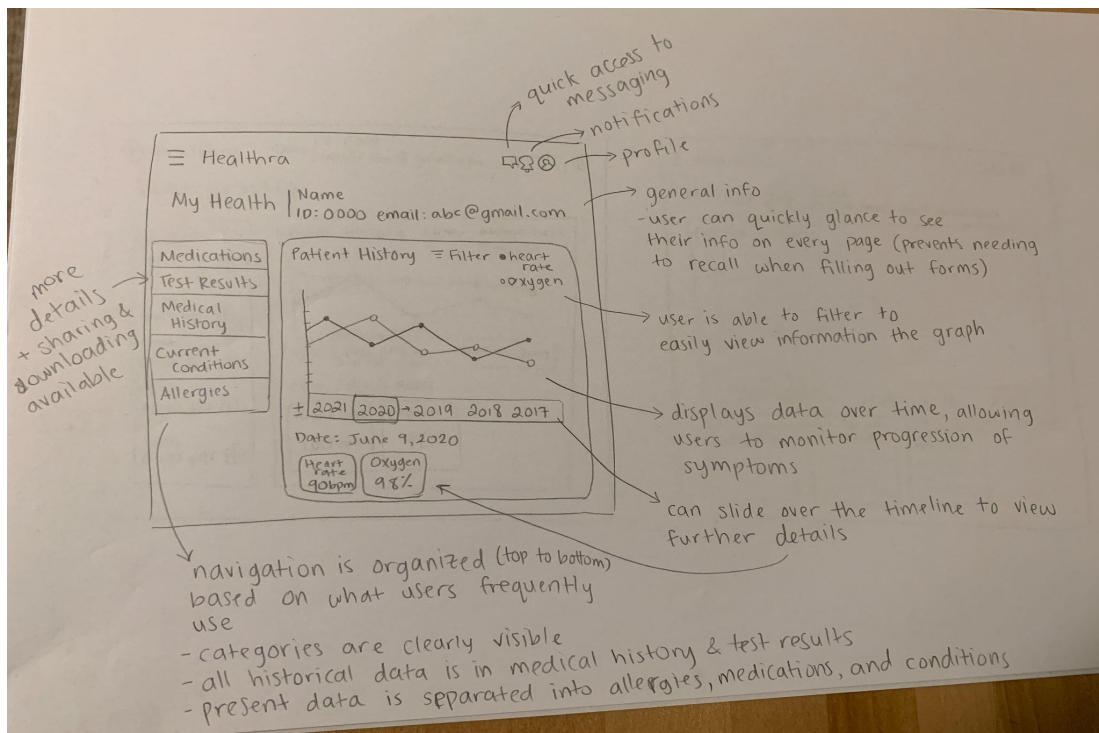 quick access to
messaging
notifications
profile
Healthra
My Health
Name
ID: 0000 email: abc@gmail.com
general info
- user can quickly glance to see
their info on every page (prevents needing
to recall when filling out forms)
more
details
+ sharing &
downloading
available
Medications
Test Results
Medical
History
Current
Conditions
Allergies
Patient History
Filter
heart
rate
oxygen
user is able to filter to
easily view information the graph
± 2021 2020 → 2019 2018 2017
displays data over time, allowing
users to monitor progression of
symptoms
Date: June 9, 2020
Heart
rate
90bpm
Oxygen
98%
can slide over the timeline to view
further details
navigation is organized (top to bottom)
based on what users frequently
use
- categories are clearly visible
- all historical data is in medical history & test results
- present data is separated into allergies, medications, and conditions